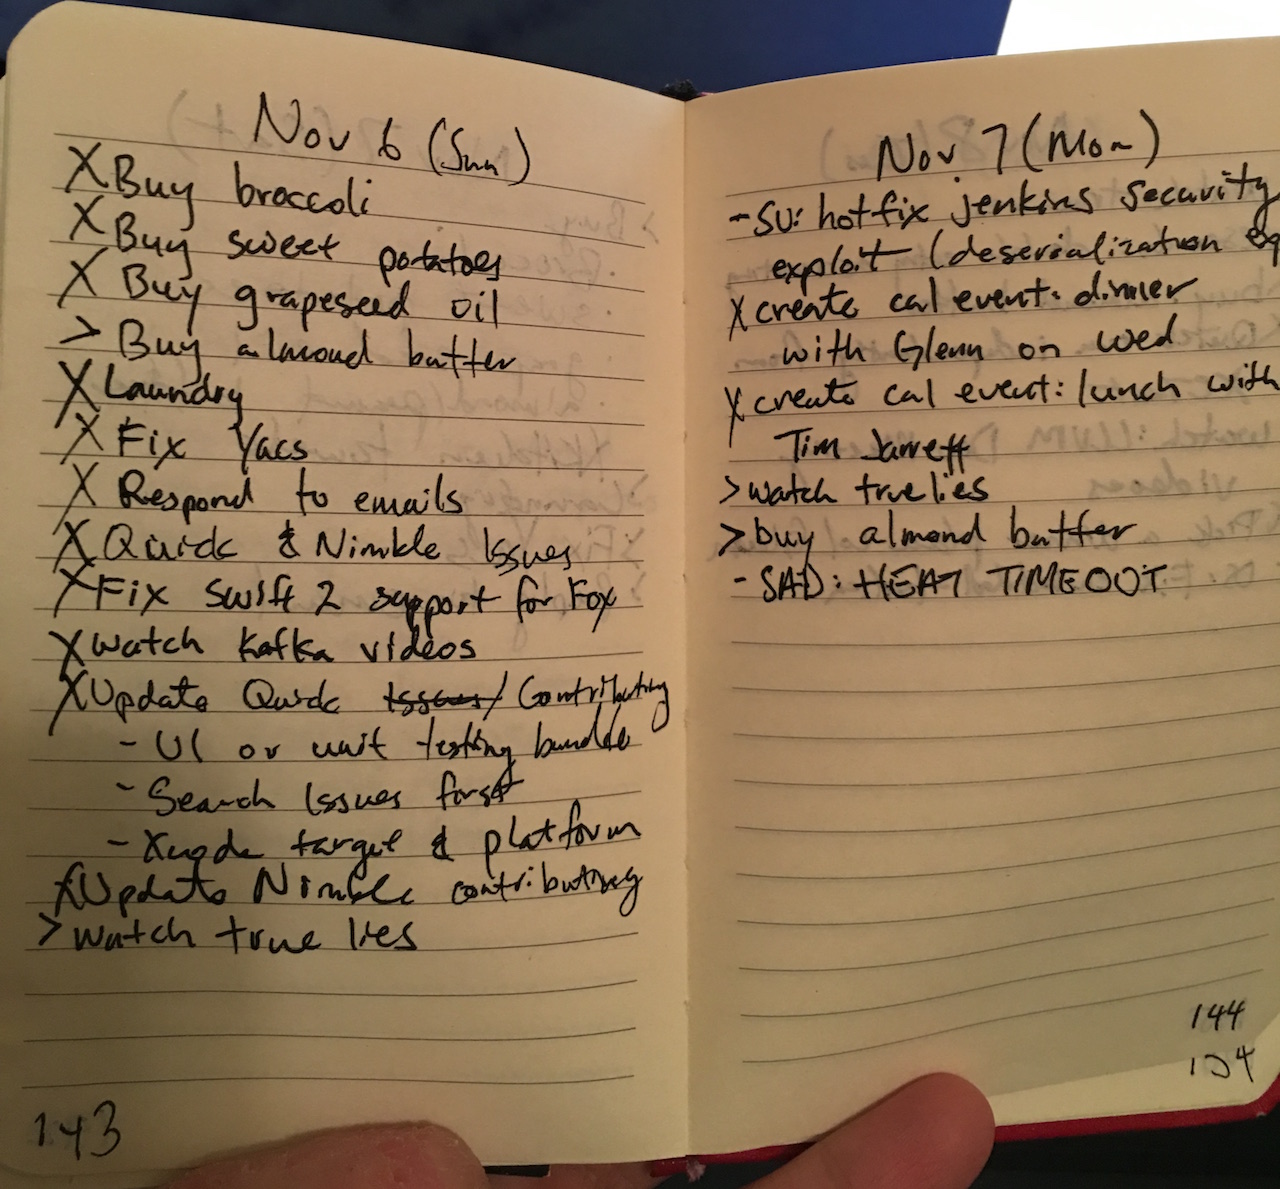 Nov 6 (Sun)
X Buy broccoli
X Buy sweet potatoes
X Buy grapeseed oil
> Buy almond butter
X Laundry
X Fix Yacs
X Respond to emails
X Quick & Nimble Issues
X Fix Swift 2 support for Fox
X Watch Kafka videos
X Update Quick Issues/Contributing
- UI or unit testing bundle
- Search Issues first
- Xcode target & platform
X Update Nimble contributing
> Watch true lies
143
Nov 7 (Mon)
- SU: hotfix jenkins security
exploit (deserialization
X create cal event: dinner
with Glenn on Wed
X create cal event: lunch with
Tim Jarrett
> watch true lies
> buy almond butter
- SAD: HEAT TIMEOUT
144